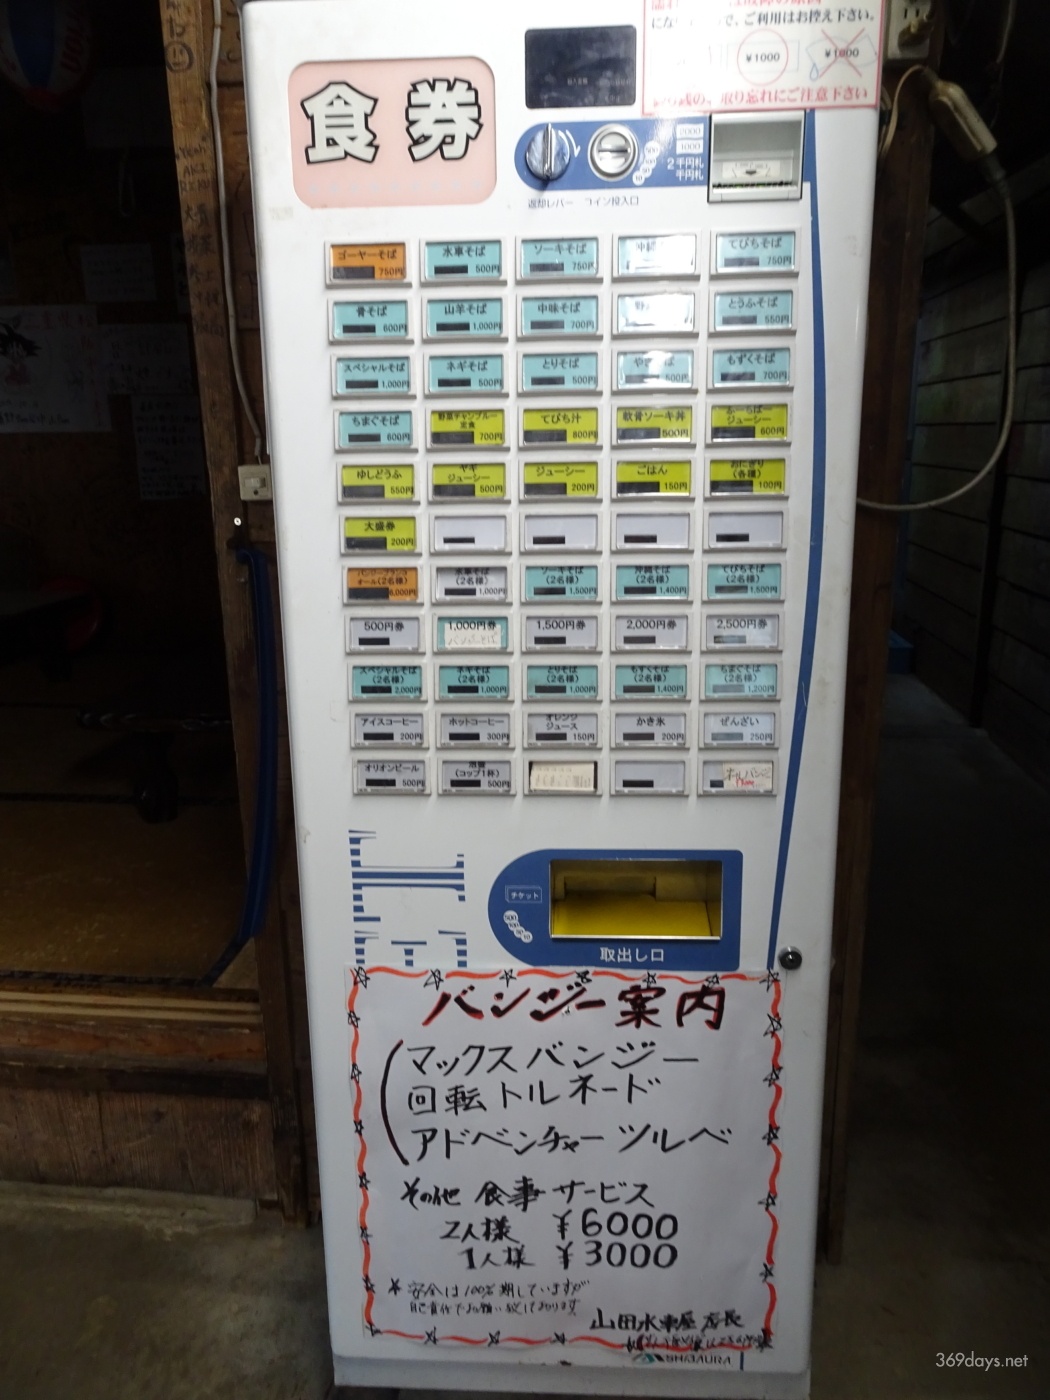 になり で、ご利用はお控え下さい。
¥1000
¥1000
取り忘れにご注意下さい
食券
2000
1000
2千円札
千円札
返却レバー コイン投入口
ゴーヤーそば 750円
水車そば 500円
ソーキそば 750円
沖縄
てびちそば 750円
骨そば 600円
山羊そば 1,000円
中味そば 700円
野
とうふそば 550円
スペシャルそば 1,000円
ネギそば 500円
とりそば 500円
や そば 500円
もずくそば 700円
ちまぐそば 600円
野菜チャンプルー定食 700円
てびち汁 800円
軟骨ソーキ丼 500円
ふーちばージューシー 600円
ゆしどうふ 550円
ヤギジューシー 500円
ジューシー 200円
ごはん 150円
おにぎり(各種) 100円
大盛券 200円
オール(2名様) 6,000円
水車そば(2名様) 1,000円
ソーキそば(2名様) 1,500円
沖縄そば(2名様) 1,400円
てびちそば(2名様) 1,500円
500円券
1,000円券
1,500円券
2,000円券
2,500円券
スペシャルそば(2名様) 2,000円
ネギそば(2名様) 1,000円
とりそば(2名様) 1,000円
もずくそば(2名様) 1,400円
ちまぐそば(2名様) 1,200円
アイスコーヒー 200円
ホットコーヒー 300円
オレンジジュース 150円
かき氷 200円
ぜんざい 250円
オリオンビール 500円
泡盛(コップ1杯) 500円
チケット
取出し口
バンジー案内
マックスバンジー
回転トルネード
アドベンチャーツルベ
その他 食事サービス
2人様 ¥6000
1人様 ¥3000
* 安全は100%期していますが
自己責任でお願い致しております
山田水車屋 店長
SHIBAURA
369days.net